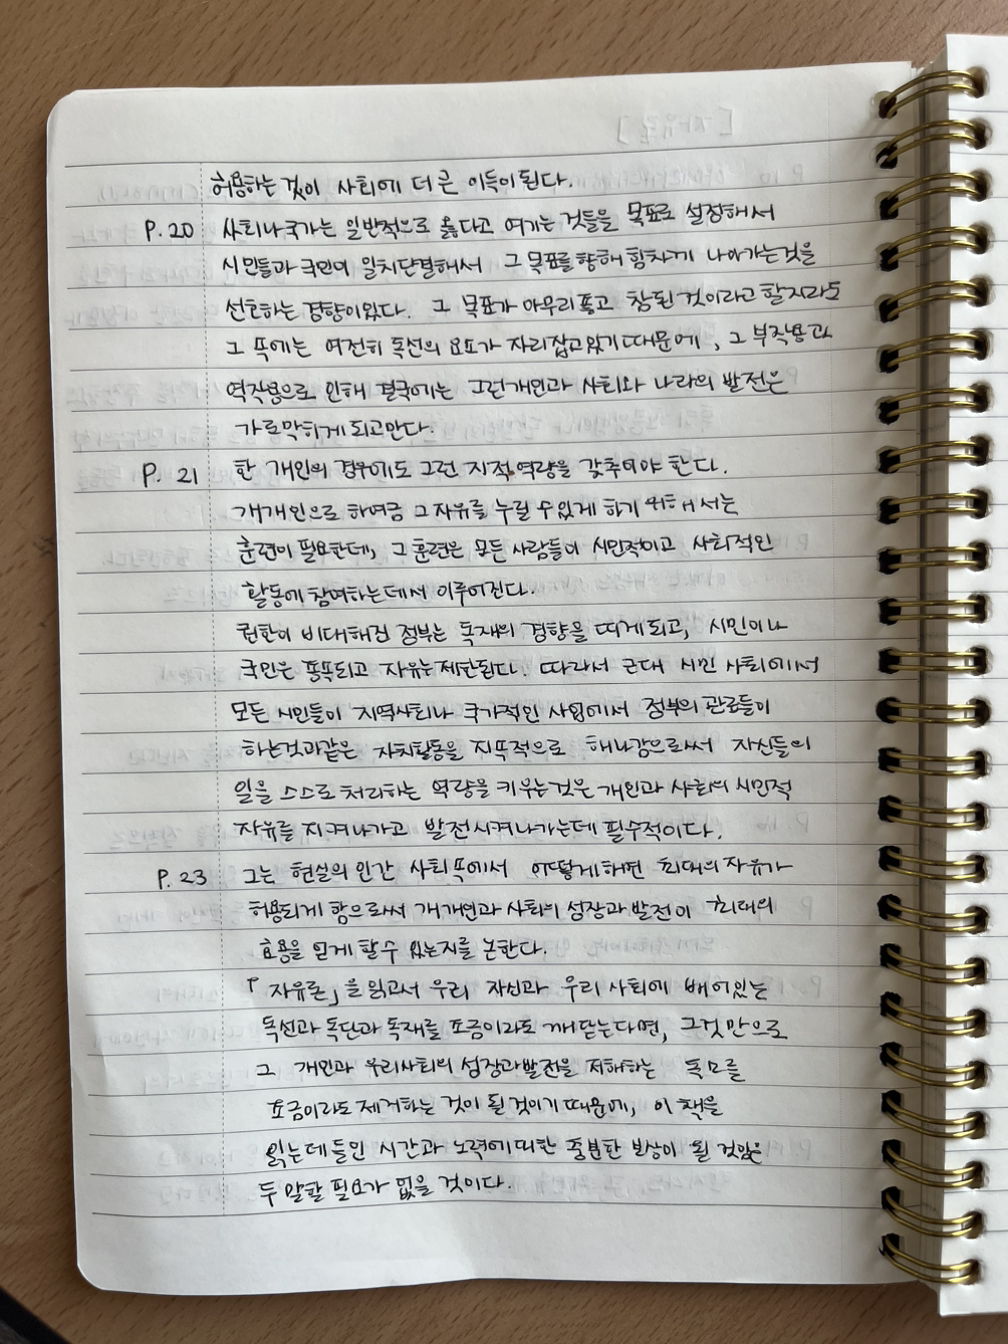 허용하는 것이 사회에 더 큰 이득이 된다.
P. 20 사회나 국가는 일반적으로 옳다고 여기는 것들을 목표로 설정해서
시민들과 국민이 일치단결해서 그 목표를 향해 힘차게 나아가는 것을
선호하는 경향이 있다. 그 목표가 아무리 좋고 참된 것이라고 할지라도
그 속에는 여전히 독선의 요소가 자리잡고 있기 때문에, 그 부작용과
역작용으로 인해 결국에는 그런 개인과 사회와 나라의 발전은
가로막히게 되고 만다.
P. 21 한 개인의 경우에도 그런 지적 역량을 갖추어야 한다.
개개인으로 하여금 그 자유를 누릴 수 있게 하기 위해서는
훈련이 필요한데, 그 훈련은 모든 사람들이 시민적이고 사회적인
활동에 참여하는 데서 이루어진다.
권한이 비대해진 정부는 독재의 경향을 띠게 되고, 시민이나
국민은 종속되고 자유는 제한된다. 따라서 근대 시민 사회에서
모든 시민들이 지역사회나 국가적인 사업에서 정부의 관료들이
하는것과같은 자치활동을 지속적으로 해나감으로써 자신들의
일을 스스로 처리하는 역량을 키우는 것은 개인과 사회의 시민적
자유를 지켜나가고 발전시켜나가는데 필수적이다.
P. 23 그는 현실의 인간 사회 속에서 어떻게 하면 최대의 자유가
허용되게 함으로써 개개인과 사회의 성장과 발전이 최대의
효용을 얻게 할 수 있는지를 논한다.
『자유론』을 읽고서 우리 자신과 우리 사회에 배어있는
독선과 독단과 독재를 조금이라도 깨닫는다면, 그것만으로
그 개인과 우리사회의 성장과 발전을 저해하는 독소를
조금이라도 제거하는 것이 될 것이기 때문에, 이 책을
읽는데 들인 시간과 노력에 대한 충분한 보상이 될 것임은
두 말할 필요가 없을 것이다.